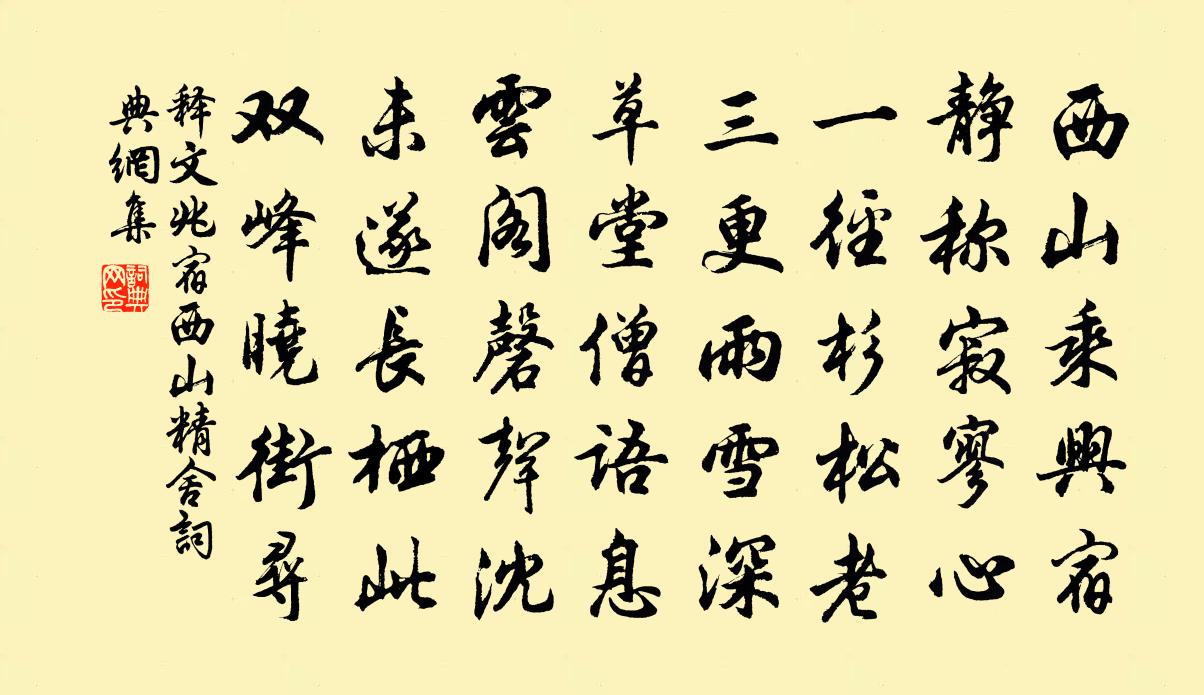 西山乘興宿
静称寂寥心
一徑杉松老
三更雨雪深
草堂僧語息
雲閣磬聲沈
未遂長棲此
双峰曉街尋
释文兆宿西山精舍詞
典網集
詞典
网印